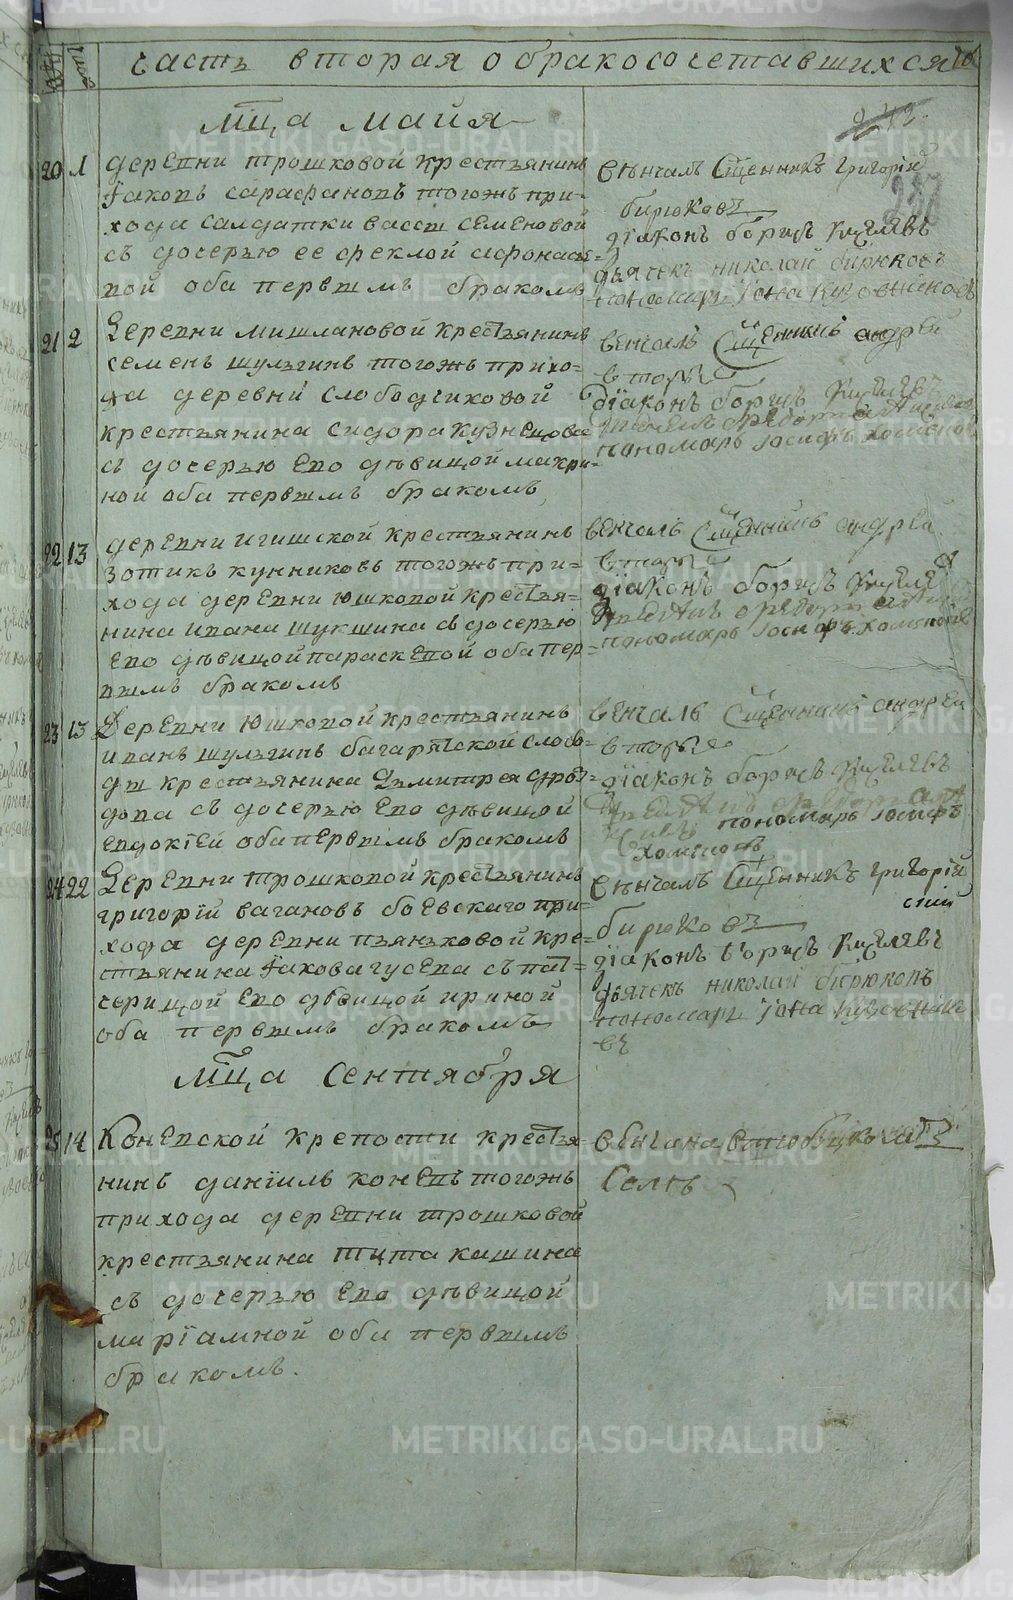 часть вторая о бракосочетавшихся
мца майя
242
20 1 деревни трошковой крестьянинъ
Іаковъ сарафановъ тогожъ при-
хода салдатки вассы семеновой
съ дочерью ее феклой афонась-
вой оба первымъ бракомъ
венчалъ Сщенникъ григорій
бирюковъ
діаконъ борисъ
дьячекъ николай бирюковъ
пономарь Іона
21 2 Деревни мишлановой крестьянинъ
семенъ шульгинъ тогожъ прихо-
да деревни слободчиковой
крестьянина сидора кузнецова
съ дочерью ево дѣвицой макри-
ной оба первымъ бракомъ
венчалъ Сщенникъ андрей
вторыхъ
діаконъ борисъ
пономарь Іосифъ
22 13 деревни игишской крестьянинъ
зотикъ кунниковъ тогожъ при-
хода деревни юшковой крестья-
нина ивана шукшина съ дочерью
ево дѣвицой параскевой оба пер-
вымъ бракомъ
венчалъ Сщенникъ андрей
вторыхъ
діаконъ борисъ
пономарь Іосифъ
23 13 Деревни юшковой крестьянинъ
иванъ шульгинъ багарятской слобо-
ды крестьянина Дымитрея
съ дочерью ево дѣвицой
евдокіей оба первымъ бракомъ
венчалъ Сщенникъ андрей
вторыхъ
діаконъ борисъ
пономарь Іосифъ
24 22 Деревни трошковой крестьянинъ
григорій вагановъ боевскаго при-
хода деревни пьянковой кре-
стьянина Іакова гусева съ пат-
черицой ево дѣвицой ириной
оба первымъ бракомъ
венчалъ Сщенникъ григорій
бирюковъ
діаконъ борисъ
дьячекъ николай бирюковъ
пономарь Іона
мца Сентября
25 14 Коневской крепости крестья-
нинъ даніилъ коневъ тогожъ
прихода деревни трошковой
крестьянина тита кашина
съ дочерью ево дѣвицой
маріамной оба первымъ
бракомъ.
венчана
Селѣ
METRIKI.GASO-URAL.RU